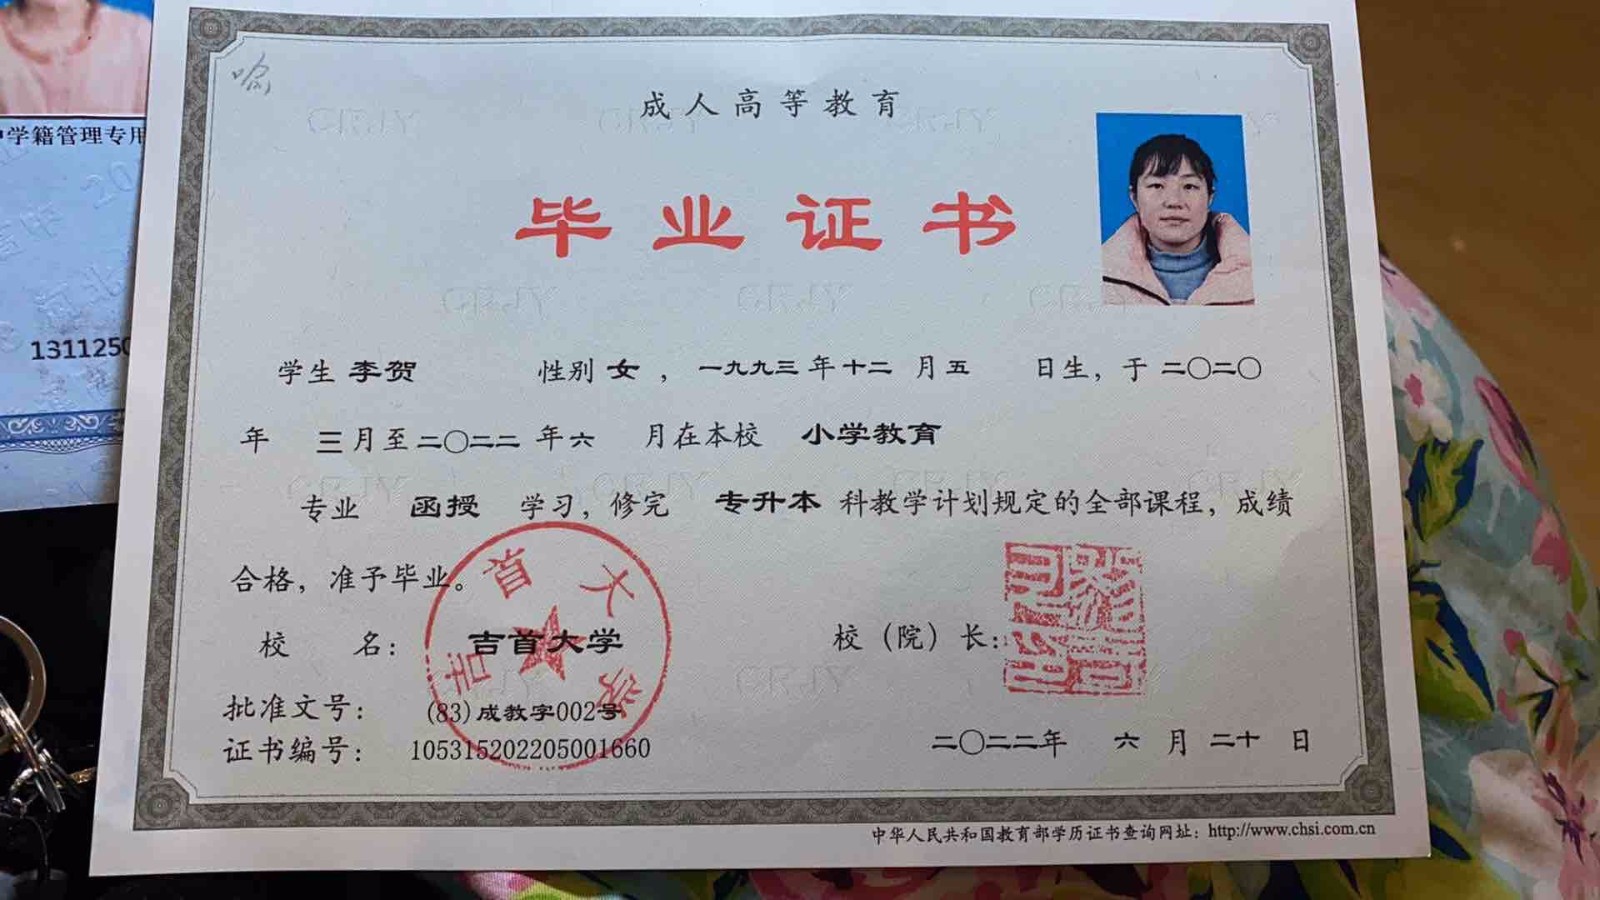 喻
成人高等教育
毕业证书
学籍管理专用
1311250
学生 李贺 性别 女 ， 一九九三 年 十二 月 五 日生，于 二〇二〇
年 三 月至 二〇二二 年 六 月在本校 小学教育
专业 函授 学习，修完 专升本 科教学计划规定的全部课程，成绩
合格，准予毕业。
吉首大学
校 名： 吉首大学 校（院）长：
批准文号： (83)成教字002号
证书编号： 105315202205001660 二〇二二年 六 月 二十 日
中华人民共和国教育部学历证书查询网址：http://www.chsi.com.cn